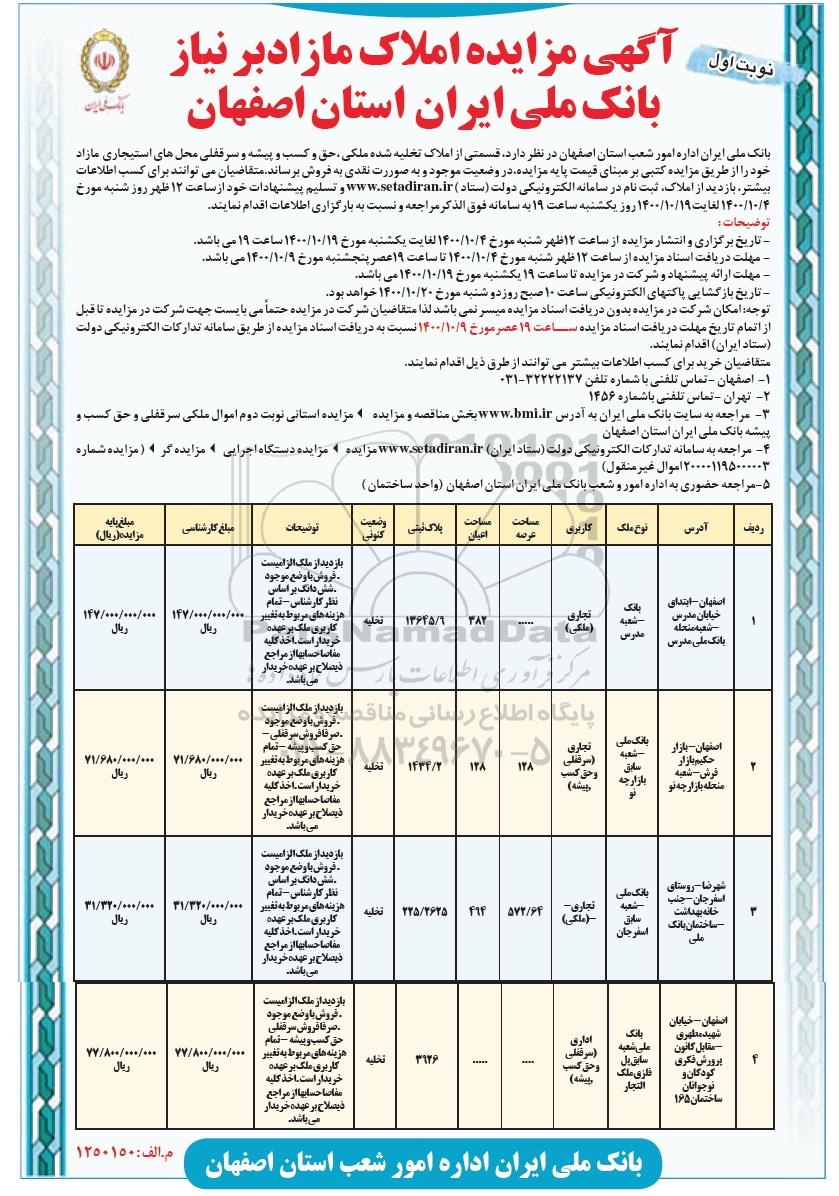 نوبت اول
آگهی مزایده املاک مازادبر نیاز
بانک ملی ایران استان اصفهان
بانک ملی ایران
بانک ملی ایران اداره امور شعب استان اصفهان در نظر دارد، قسمتی از املاک تخلیه شده ملکی ،حق و کسب و پیشه و سرقفلی محل های استیجاری مازاد
خود را از طریق مزایده کتبی بر مبنای قیمت پایه مزایده،در وضعیت موجود و به صورت نقدی به فروش برساند.متقاضیان می توانند برای کسب اطلاعات
بیشتر، بازدید از املاک، ثبت نام در سامانه الکترونیکی دولت (ستاد ) www.setadiran.ir و تسلیم پیشنهادات خود از ساعت ۱۲ ظهر روز شنبه مورخ
۱۴۰۰/۱۰/۴ لغایت ۱۴۰۰/۱۰/۱۹ روز یکشنبه ساعت ۱۹ به سامانه فوق الذکر مراجعه و نسبت به بارگزاری اطلاعات اقدام نمایند.
توضیحات :
- تاریخ برگزاری و انتشار مزایده از ساعت ۱۲ظهر شنبه مورخ ۱۴۰۰/۱۰/۴ لغایت یکشنبه مورخ ۱۴۰۰/۱۰/۱۹ ساعت ۱۹ می باشد.
- مهلت دریافت اسناد مزایده از ساعت ۱۲ ظهر شنبه مورخ ۱۴۰۰/۱۰/۴ تا ساعت ۱۹عصر پنجشنبه مورخ ۱۴۰۰/۱۰/۹ می باشد.
- مهلت ارائه پیشنهاد و شرکت در مزایده تا ساعت ۱۹ یکشنبه مورخ ۱۴۰۰/۱۰/۱۹ می باشد.
- تاریخ بازگشایی پاکتهای الکترونیکی ساعت ۱۰ صبح روز دو شنبه مورخ ۱۴۰۰/۱۰/۲۰ خواهد بود.
توجه: امکان شرکت در مزایده بدون دریافت اسناد مزایده میسر نمی باشد لذا متقاضیان شرکت در مزایده حتماً می بایست جهت شرکت در مزایده تا قبل
از اتمام تاریخ مهلت دریافت اسناد مزایده ســـاعت ۱۹ عصرمورخ ۱۴۰۰/۱۰/۹ نسبت به دریافت اسناد مزایده از طریق سامانه تدارکات الکترونیکی دولت
(ستاد ایران) اقدام نمایند.
متقاضیان خرید برای کسب اطلاعات بیشتر می توانند از طرق ذیل اقدام نمایند.
۱- اصفهان -تماس تلفنی با شماره تلفن ۳۲۲۲۲۱۳۷-۰۳۱
۲- تهران -تماس تلفنی باشماره ۱۴۵۶
۳- مراجعه به سایت بانک ملی ایران به آدرس www.bmi.ir بخش مناقصه و مزایده ◄ مزایده استانی نوبت دوم اموال ملکی سرقفلی و حق کسب و
پیشه بانک ملی ایران استان اصفهان
۴- مراجعه به سامانه تدارکات الکترونیکی دولت (ستاد ایران) www.setadiran.ir مزایده ◄ مزایده دستگاه اجرایی ◄ مزایده گر ◄ ( مزایده شماره
۲۰۰۰۰۱۱۹۵۰۰۰۰۰۳ اموال غیر منقول)
۵-مراجعه حضوری به اداره امور و شعب بانک ملی ایران استان اصفهان (واحد ساختمان )
ردیف آدرس نوع ملک کاربری مساحت عرصه مساحت اعیان پلاک ثبتی وضعیت کنونی توضیحات مبلغ کارشناسی مبلغ پایه مزایده(ریال)
۱ اصفهان-ابتدای خیابان مدرس -شعبه منحله بانک ملی مدرس بانک -شعبه مدرس تجاری (ملکی) ..... ۳۸۲ ۱۳۶۴۵/۹ تخلیه بازدید از ملک الزامیست .فروش با وضع موجود .شش دانگ بر اساس نظر کارشناس -تمام هزینه های مربوط به تغییر کاربری ملک بر عهده خریدار است. اخذ کلیه مفاصا حسابها از مراجع ذیصلاح بر عهده خریدار می باشد. ۱۴۷/۰۰۰/۰۰۰/۰۰۰ ریال ۱۴۷/۰۰۰/۰۰۰/۰۰۰ ریال
۲ اصفهان-بازار حکیم بازار فرش-شعبه منحله بازارچه نو بانک ملی -شعبه سابق بازارچه نو تجاری (سرقفلی و حق کسب ,پیشه) ۱۲۸ ۱۲۸ ۱۴۳۴/۲ تخلیه بازدید از ملک الزامیست .فروش با وضع موجود .صرفا فروش سرقفلی - حق کسب و پیشه -تمام هزینه های مربوط به تغییر کاربری ملک بر عهده خریدار است. اخذ کلیه مفاصا حسابها از مراجع ذیصلاح بر عهده خریدار می باشد. ۷۱/۶۸۰/۰۰۰/۰۰۰ ریال ۷۱/۶۸۰/۰۰۰/۰۰۰ ریال
۳ شهرضا-روستای اسفرجان-جنب خانه بهداشت -ساختمان بانک ملی بانک ملی -شعبه سابق اسفرجان تجاری- -(ملکی) ۵۷۲/۶۴ ۴۹۴ ۲۲۵/۲۶۲۵ تخلیه بازدید از ملک الزامیست .فروش با وضع موجود .شش دانگ بر اساس نظر کارشناس -تمام هزینه های مربوط به تغییر کاربری ملک بر عهده خریدار است. اخذ کلیه مفاصا حسابها از مراجع ذیصلاح بر عهده خریدار می باشد. ۳۱/۳۲۰/۰۰۰/۰۰۰ ریال ۳۱/۳۲۰/۰۰۰/۰۰۰ ریال
۴ اصفهان-خیابان شهید مطهری -مقابل کانون پرورش فکری کودکان و نوجوانان ساختمان ۱۶۵ بانک ملی شعبه سابق پل فلزی ملک التجار اداری (سرقفلی و حق کسب ,پیشه) .... ..... ۳۹۲۶ تخلیه بازدید از ملک الزامیست .فروش با وضع موجود .صرفا فروش سرقفلی حق کسب و پیشه -تمام هزینه های مربوط به تغییر کاربری ملک بر عهده خریدار است. اخذ کلیه مفاصا حسابها از مراجع ذیصلاح بر عهده خریدار می باشد. ۷۷/۸۰۰/۰۰۰/۰۰۰ ریال ۷۷/۸۰۰/۰۰۰/۰۰۰ ریال
پایگاه اطلاع رسانی مناقصه و مزایده
۰۲۱-۸۸۳۴۹۶۷۰-۵
م.الف:۱۲۵۰۱۵۰
بانک ملی ایران اداره امور شعب استان اصفهان